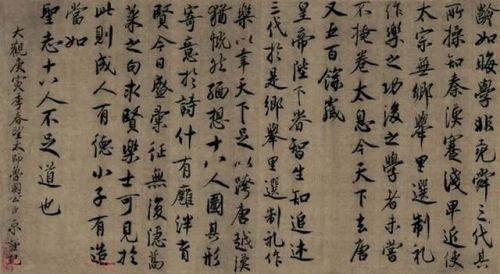 齡如晦學非堯舜三代其
所操知秦漢蹇淺卑近使
太宗無鄉舉里選制禮
作樂之功後之學者未嘗
不掩卷太息今天下去唐
又五百餘歲
皇帝陛下睿智生知追述
三代於是鄉舉里選制禮作
樂以幸天下足以跨唐越漢
猶慨然緬想十八人圖其形
寄意於詩什有廱泮育
賢今日盛彙征無復隱蒿
萊之句求賢樂士可見於
此則成人有德小子有造
當如
聖志十八人不足道也
大觀庚寅季春望太師魯國公臣京謹記